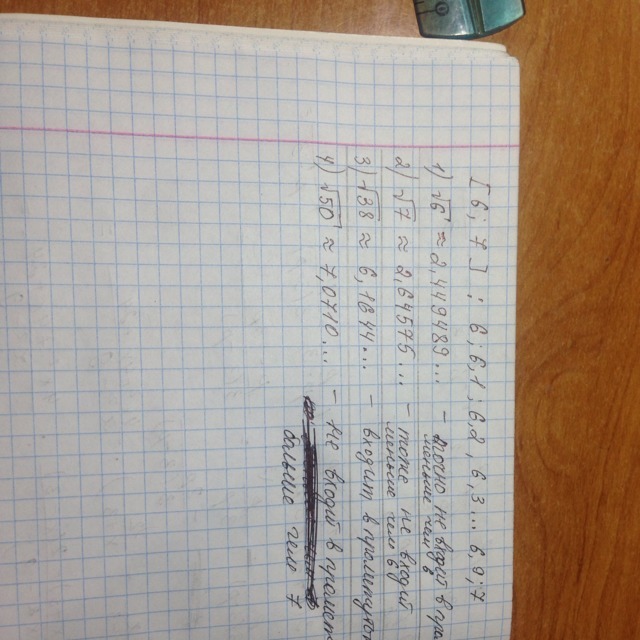 [6; 7] ; 6; 6,1; 6,2, 6,3... 6,9; 7
1) √6 ≈ 2,449489... - не входит в
меньше чем 6
2) √7 ≈ 2,64575... - тоже не входит
меньше чем 6
3) √38 ≈ 6,1644... - входит в промежуток
4) √50 ≈ 7,0710... - не входит в промеж
больше чем 7